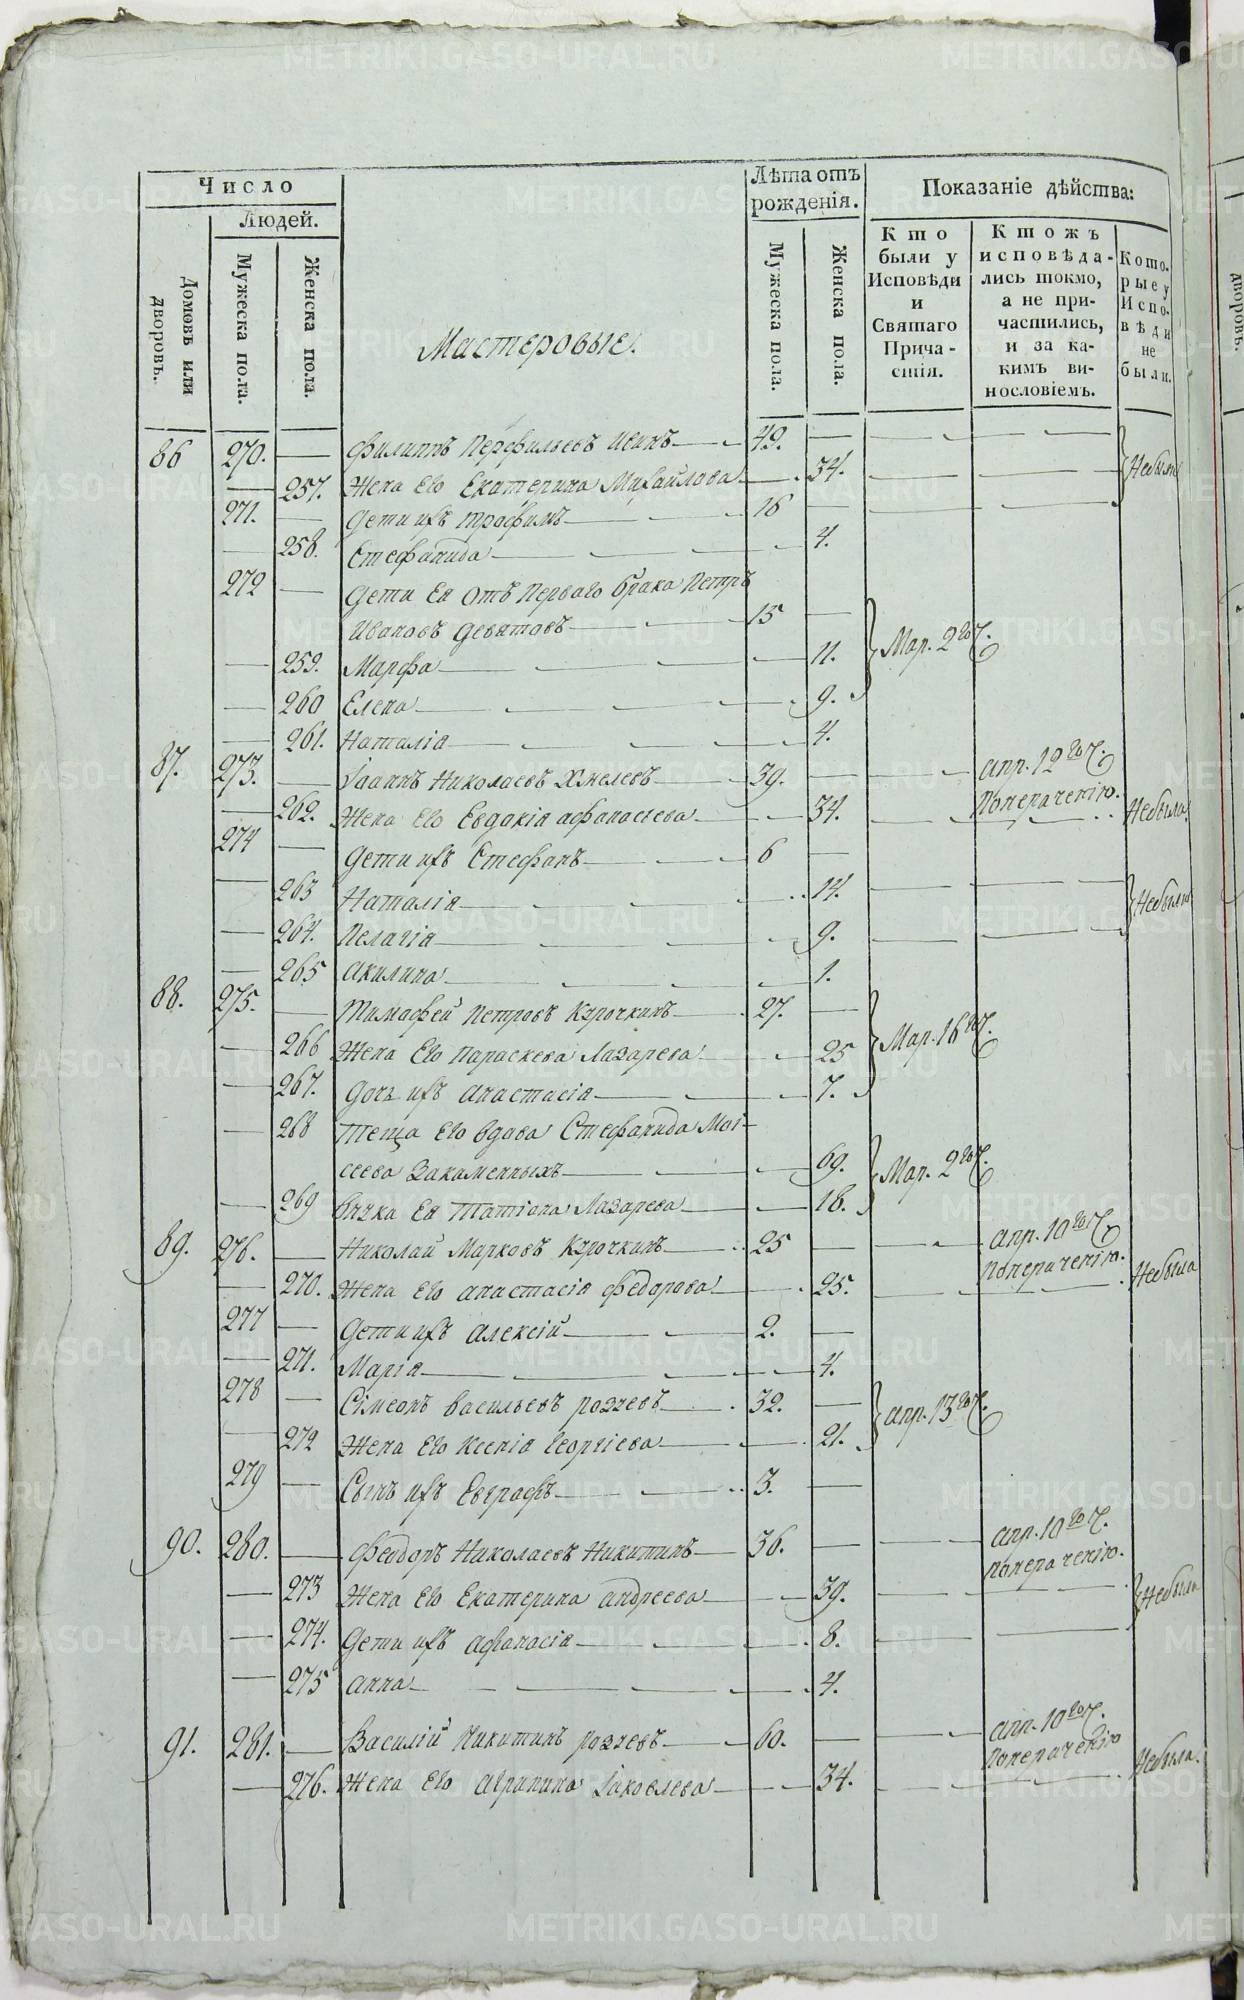 Число
Людей.
Домовъ или дворовъ.
Мужеска пола.
Женска пола.
Мастеровые.
Лѣта отъ рожденія.
Мужеска пола.
Женска пола.
Показаніе дѣйства:
Кто были у Исповѣди и Святаго Прича-стія.
Ктожъ исповѣда-лись токмо, а не при-частились, и за ка-кимъ ви-нословіемъ.
Кото-рые у Испо-вѣди не были.
86 270. Филиппъ Перфильевъ 49.
257. Жена Его Екатерина Михайлова 34. Небыли
271. Дети ихъ Трофимъ 16
258. Стефанида 4.
272 Дети Ея отъ Перваго брака Петръ
Ивановъ Девятовъ 15
259. Марфа 11. Мар. 2 го Ч.
260 Елена 9.
261. Наталія 4.
87. 273. Іоаннъ Николаевъ Хмелевъ 39. Апр. 12 го Ч.
Понерачению.
262. Жена Его Евдакія Афанасьева 34. Небыла.
274 Дети ихъ Стефанъ 6
263 Наталія 14. Небыли
264. Пелагія 9.
265 Акилина 1.
88. 275. Тимофей Петровъ Курочкинъ 27.
266 Жена Его Параскева Лазарева 25 Мар. 16 го Ч.
267. Дочь ихъ Анастасія 7.
268 Теща Его вдова Стефанида Мои-
сеева Закаменныхъ 69. Мар. 2 го Ч.
269 Внука Ея Татіана Лазарева 18.
89. 276. Николай Марковъ Курочкинъ 25 Апр. 10 го Ч.
Понерачению.
270. Жена Его Анастасія Федорова 25. Небыла
277 Дети ихъ Алексій 2.
271. Марія 4.
278 Сімеонъ Васильевъ 32. Апр. 13 го Ч.
272 Жена Его Ксенія Георгіева 21.
279 Сынъ ихъ Евграфъ 3.
90. 280. Феодоръ Николаевъ Никитинъ 36. Апр. 10 го Ч.
Понерачению.
273 Жена Его Екатерина Андреева 39. Небыли
274. Дети ихъ Афанасія 8.
275 Анна 4.
91. 281. Василій Никитинъ 60. Апр. 10 го Ч.
Понерачению
276. Жена Его Агрипина Іаковлева 34. Небыла.
METRIKI.GASO-URAL.RU